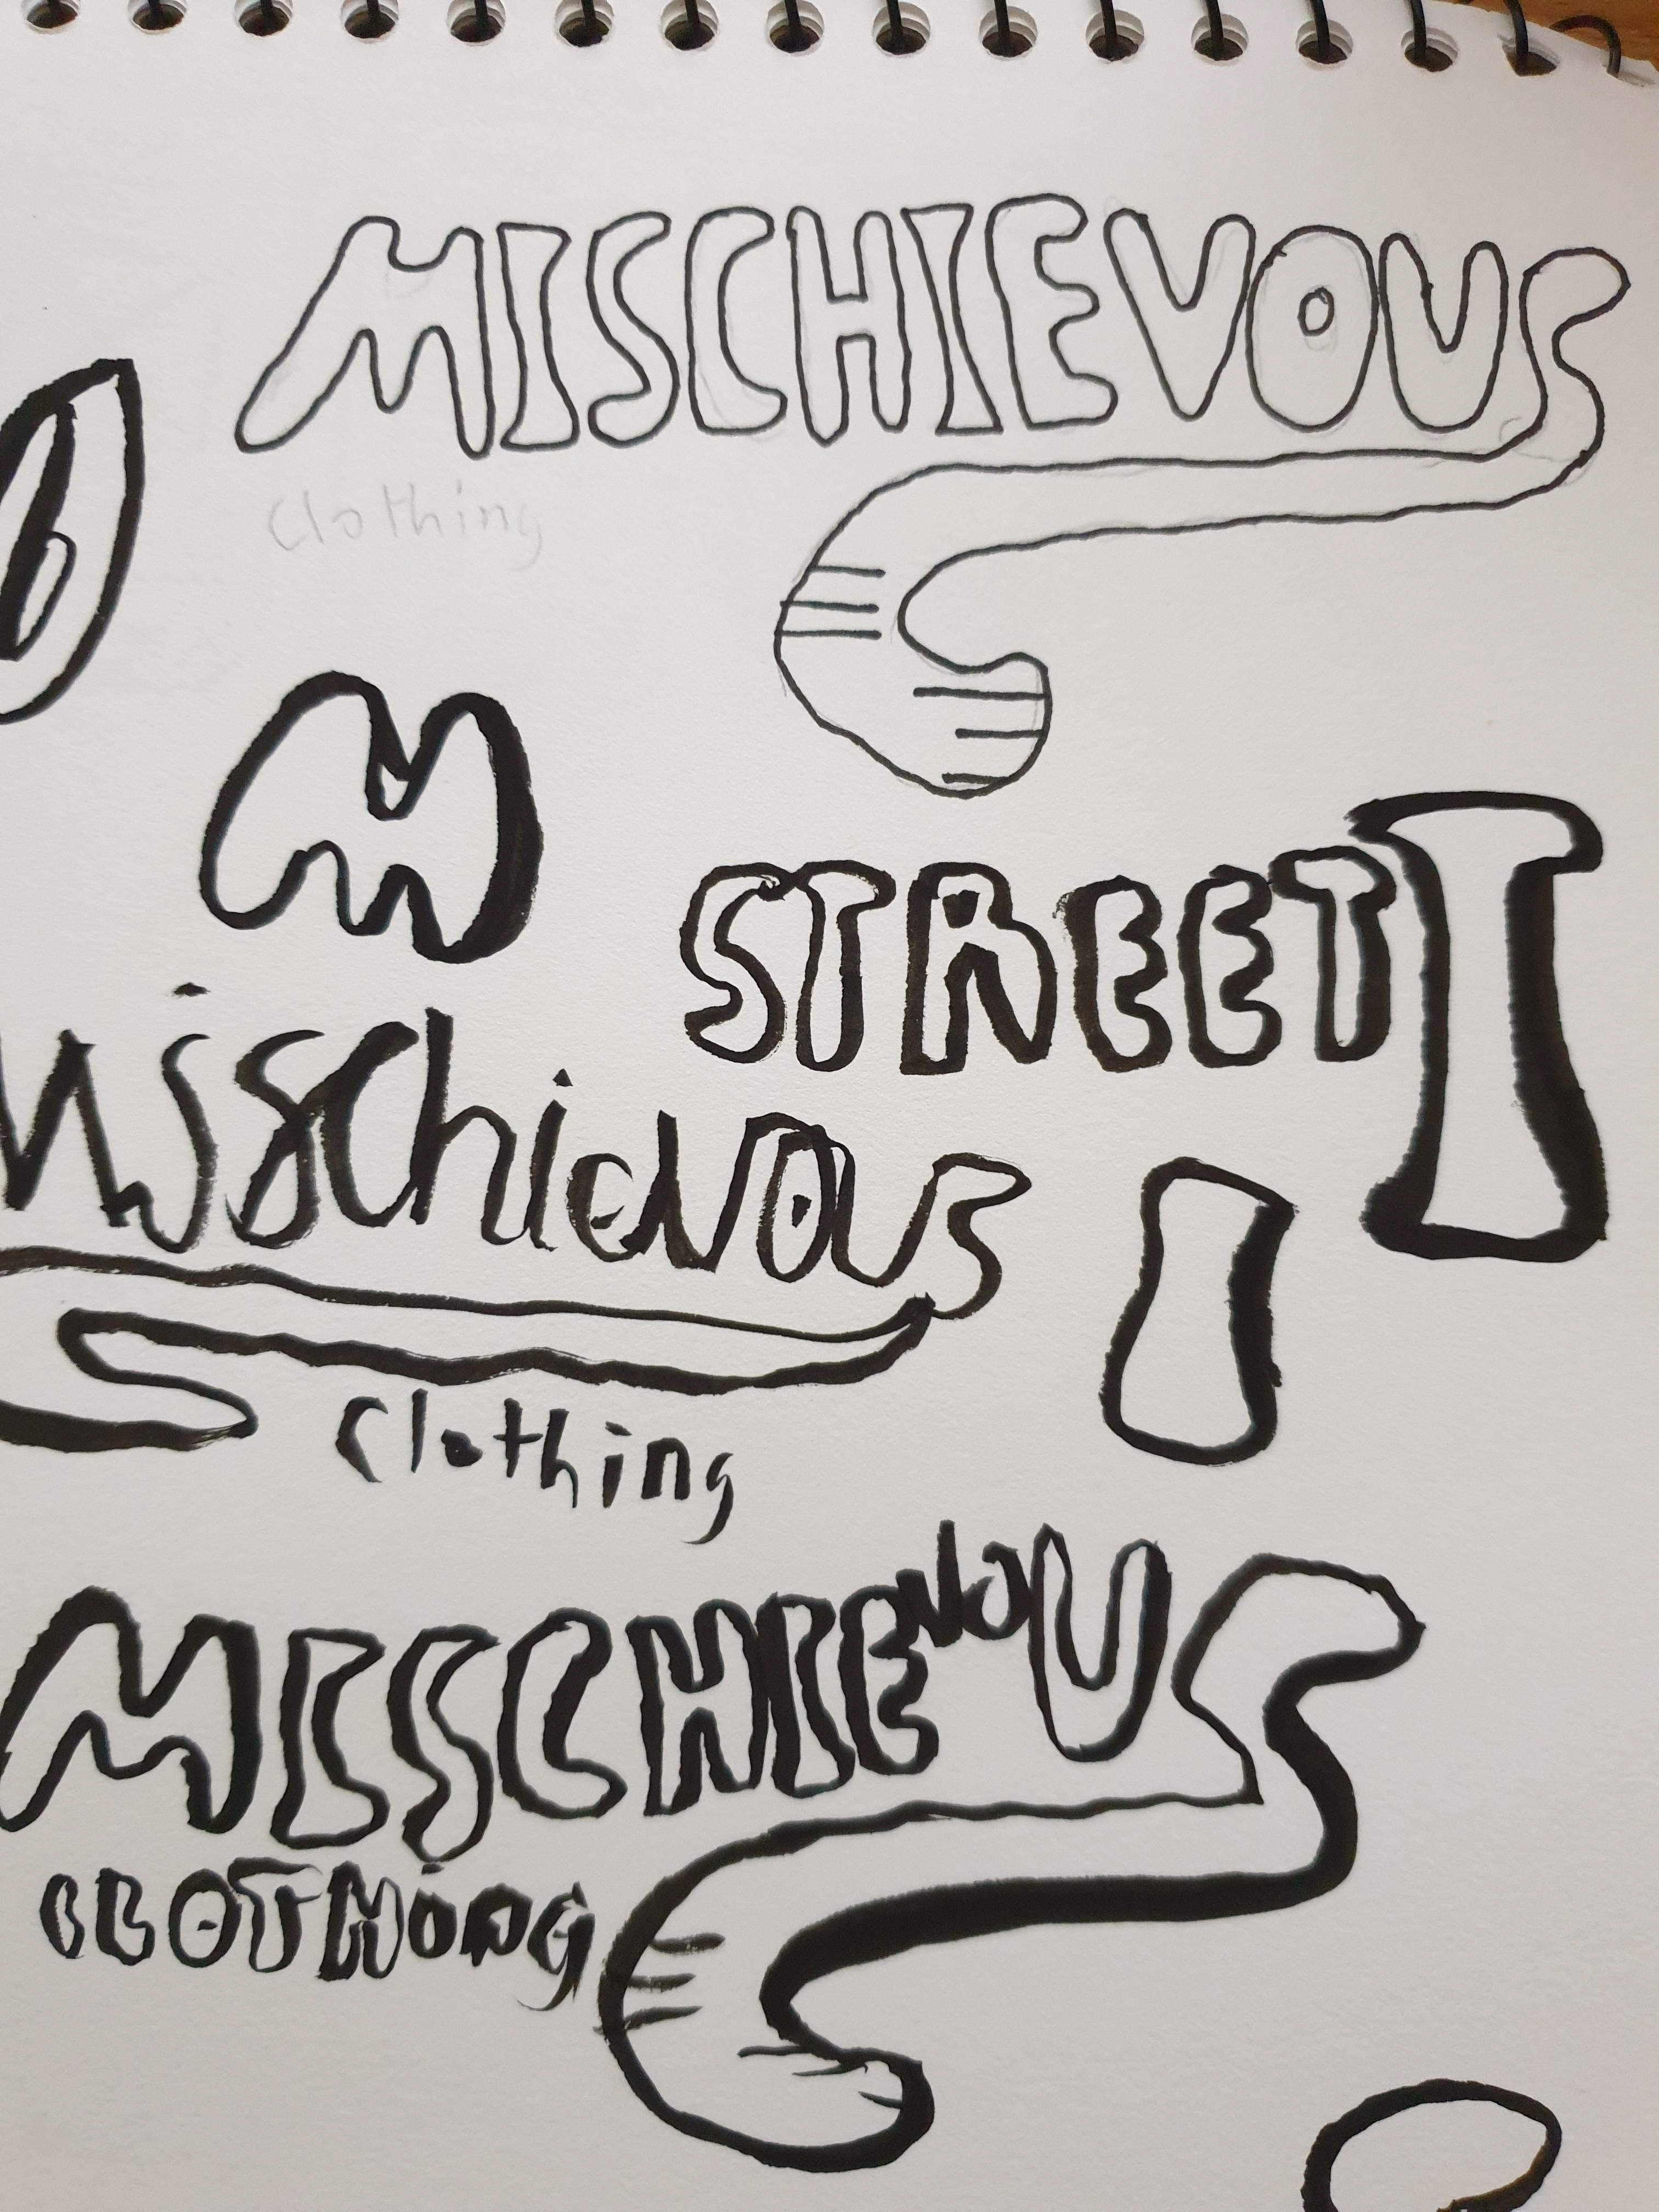 MISCHIEVOUS
clothing
M
STREET
T
mischievous
clothing
I
MISCHIEVOUS
CLOTHiNg